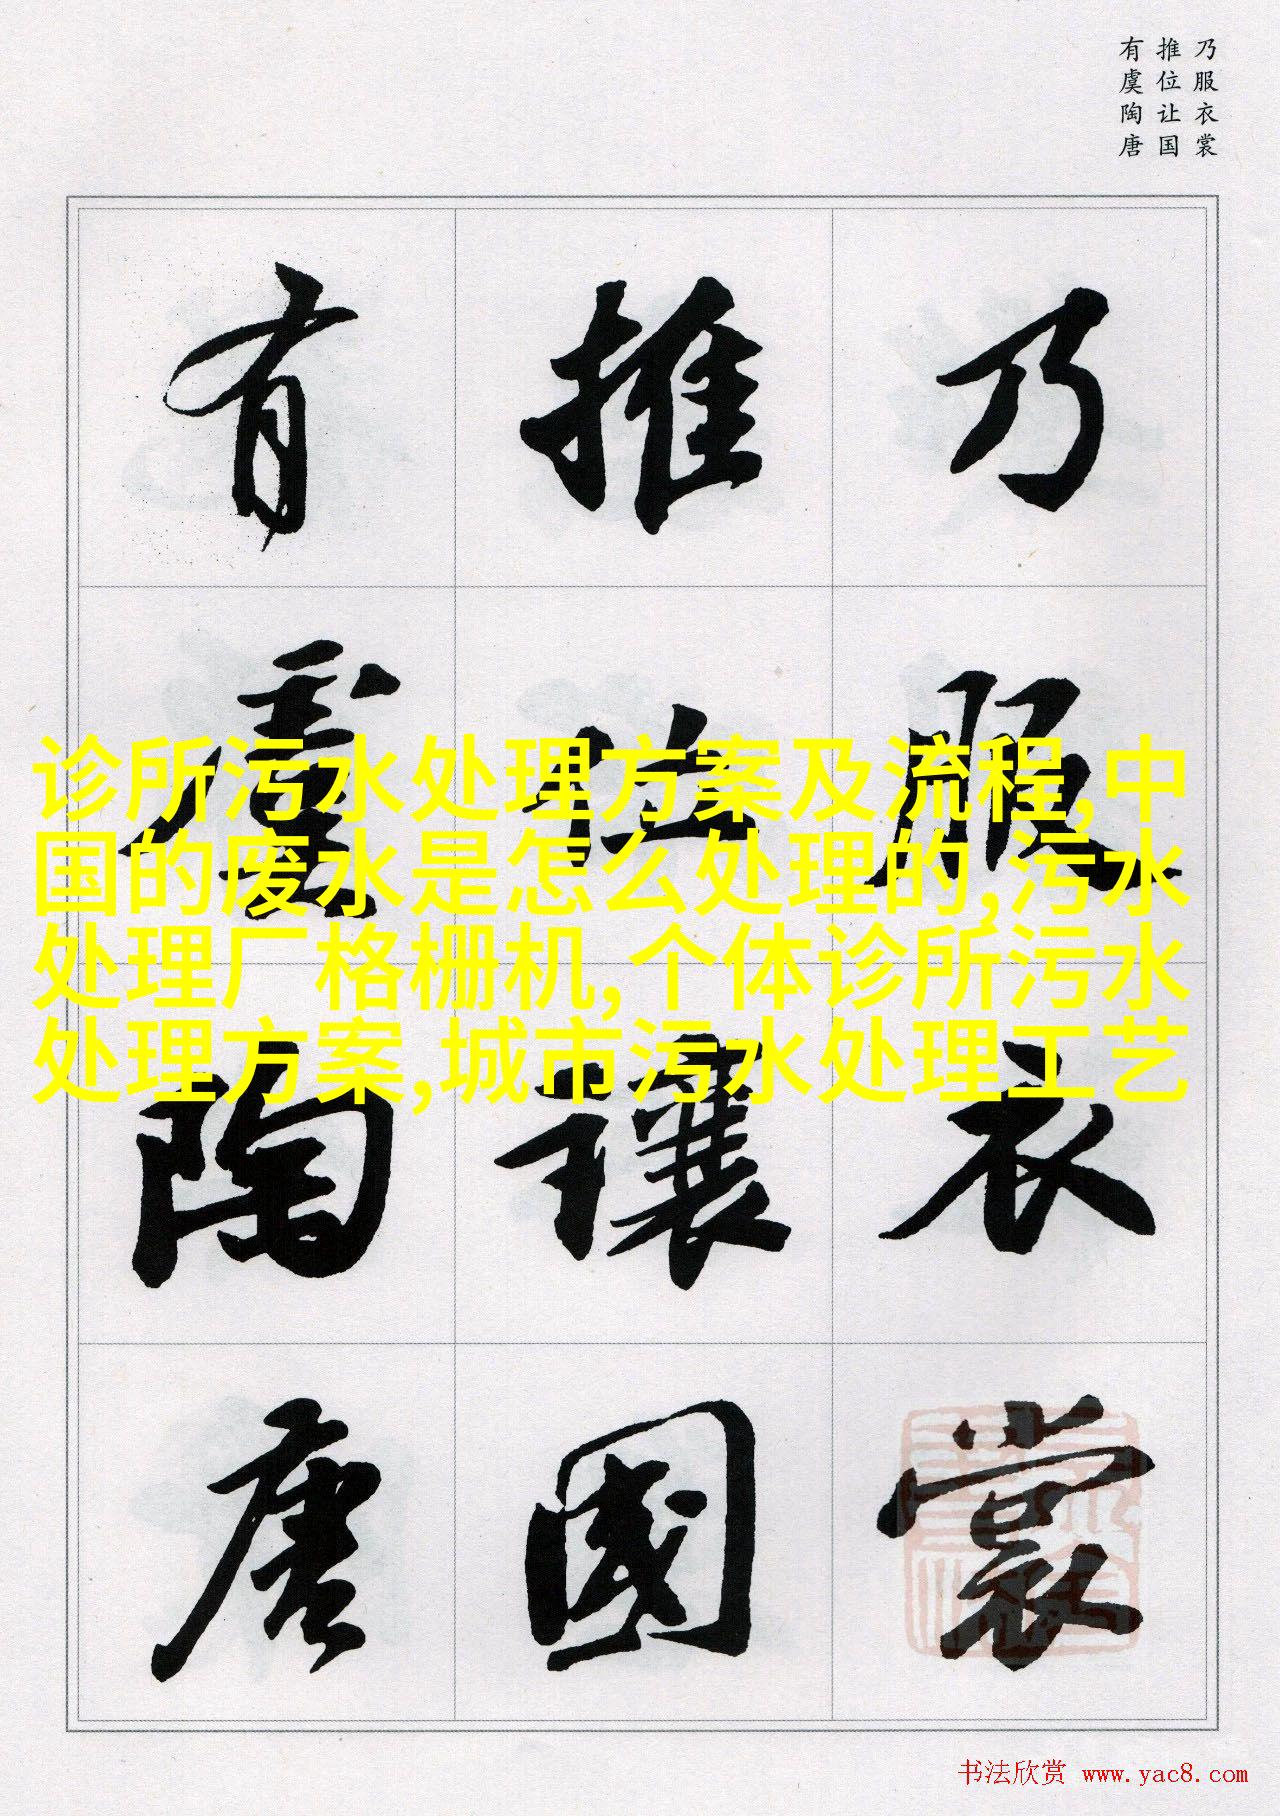 乃服衣裳
推位让国
有虞陶唐
乃服衣裳
推位讓國
有虞陶唐
诊所污水处理方案及流程,中
国的废水是怎么处理的,污水
处理厂格栅机,个体诊所污水
处理方案,城市污水处理工艺
书法欣赏 www.yac8.com